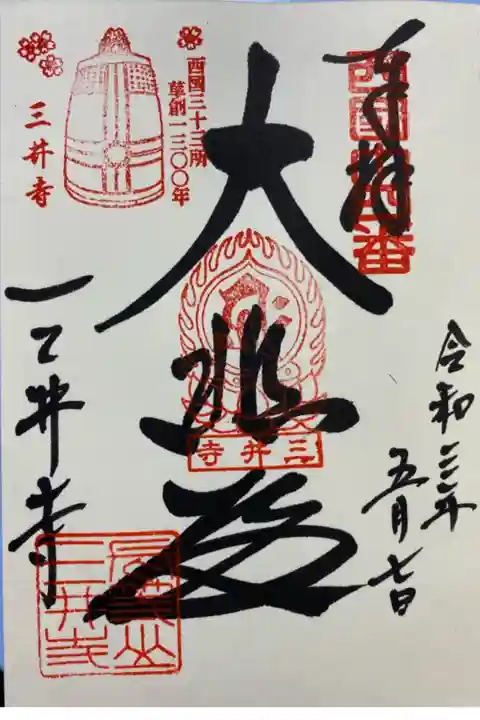 奉拝
西国十四番
令和三年
五月七日
西國三十三所
草創一三〇〇年
三井寺
大悲殿
三井寺
三井寺
長等山
三井寺